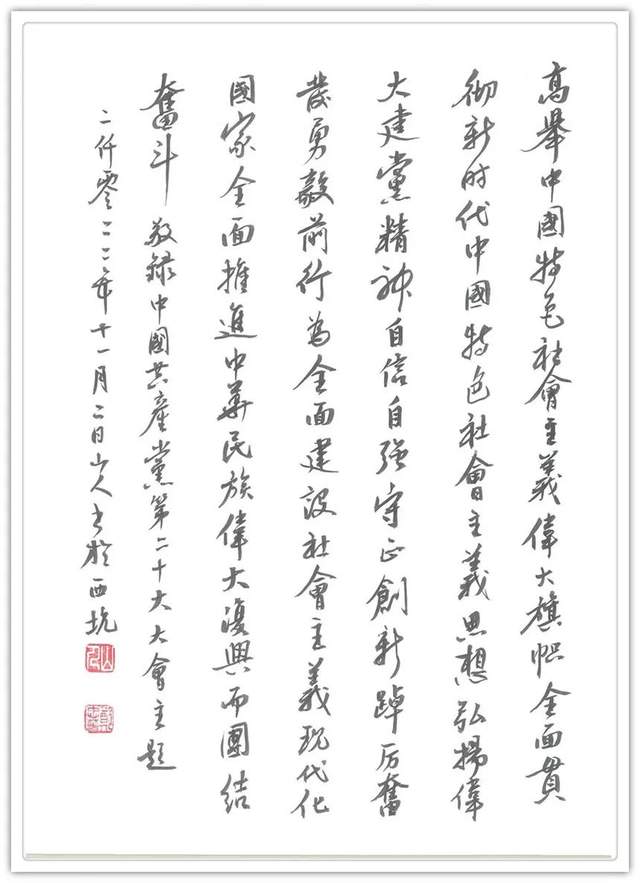 高舉中國特色社會主義偉大旗幟全面貫
彻新时代中國特色社會主義思想弘揚偉
大建黨精神自信自强守正創新踔厉奮
發勇毅前行為全面建設社會主義现代化
國家全面推進中華民族偉大復興而團結
奮斗 敬録中國共產黨第二十大大會主題
二仟零二二年十一月二日山人书於西坑